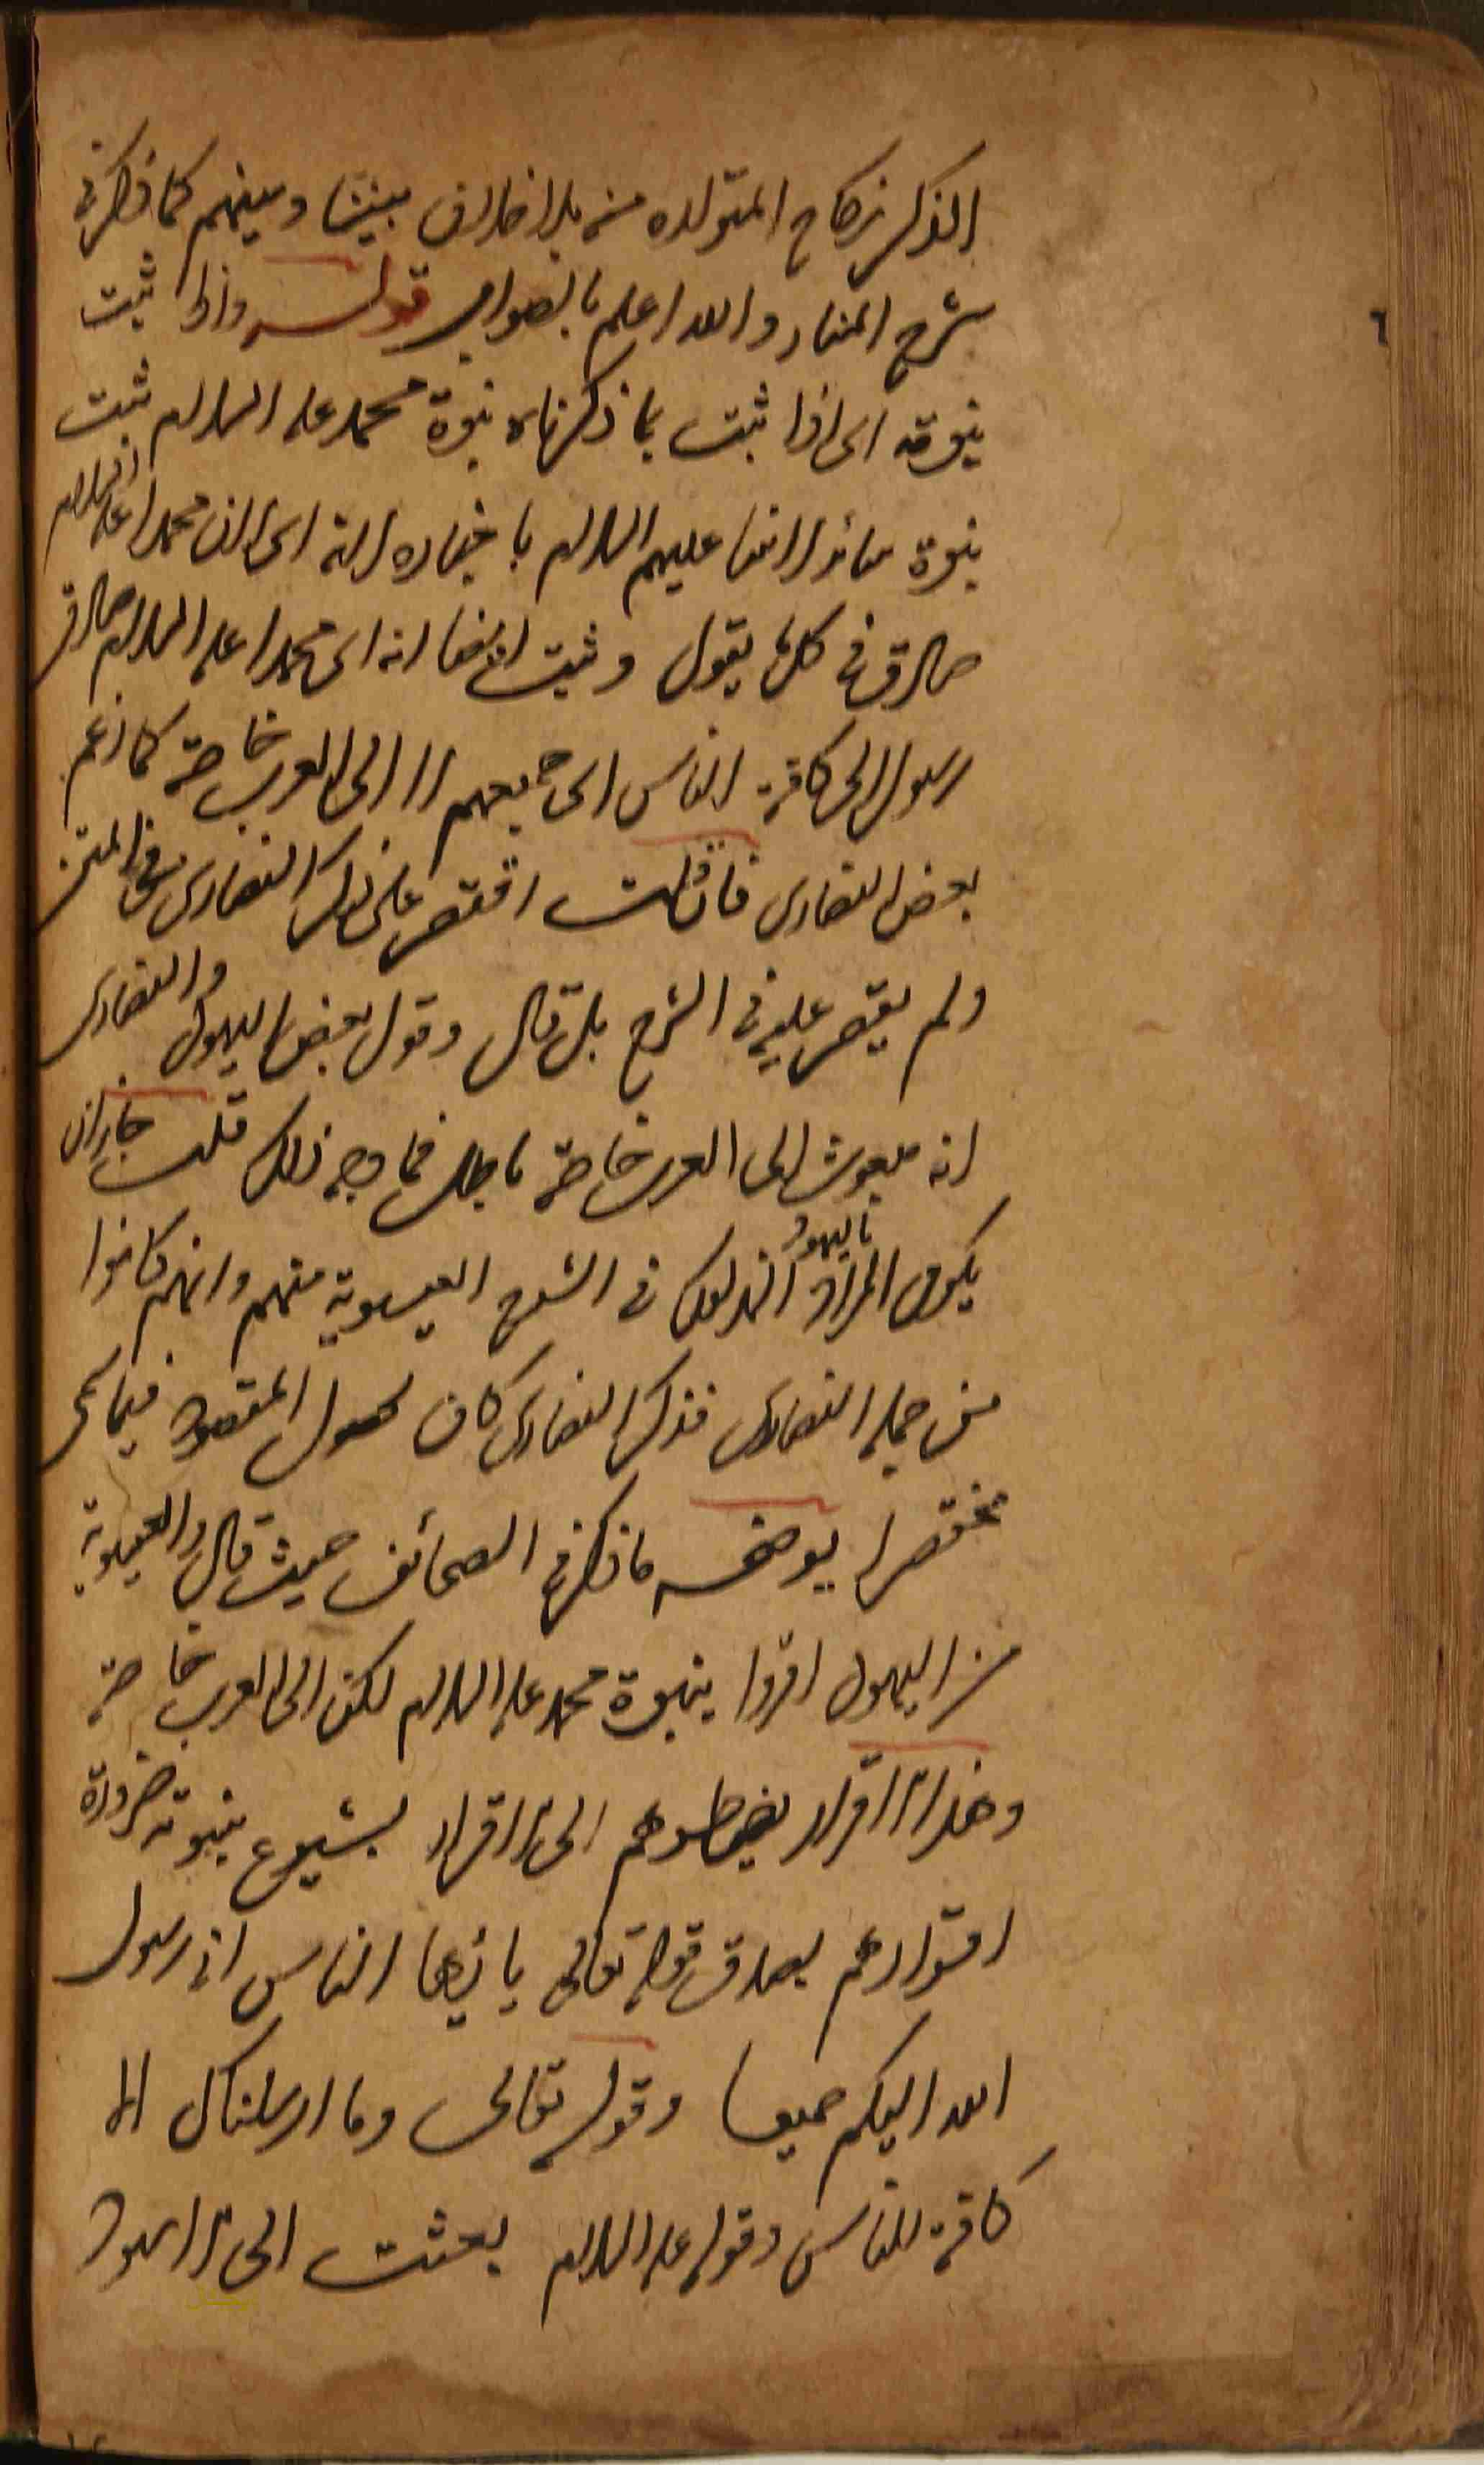 الذكر نكاح المتولده منه بلا خلاف بيننا وبينهم كما ذكر في
شرح المنار والله اعلم بالصواب قوله واذا ثبت
نبوته اى اذا ثبت بما ذكرناه نبوة محمد عليه السلام ثبت
نبوة سائر الانبيا عليهم السلام باخباره لانه اى لان محمدا عليه السلام
صادق في كل ما يقول وثبت ايضا انه اى محمدا عليه السلام صادق
رسول الى كافة الناس اى جميعهم لا الى العرب خاصة كما زعم
بعض النصارى فان قلت اقتصر على ذكر النصارى في المتن
ولم يقتصر عليه في الشرح بل قال وقول بعض اليهود والنصارى
انه مبعوث الى العرب خاصة باطل فما وجه ذلك قلت جاز ان
يكون المراد باليهود المذكور في الشرح العيسوية منهم وانهم كانوا
من جملة النصارى فذكر النصارى كاف لحصول المقصود فيما سمى
مختصرا يوضحه ما ذكر في الصحائف حيث قال والعيسوية
من اليهود اقروا بنبوة محمد عليه السلام لكن الى العرب خاصة
وهذا الاقرار يضطرهم الى الاقرار بشيوع نبوته ضرورة
اقرارهم بصدق قوله تعالى يا ايها الناس انى رسول
الله اليكم جميعا وقوله تعالى وما ارسلناك الا
كافة للناس وقوله عليه السلام بعثت الى الاسود
٦